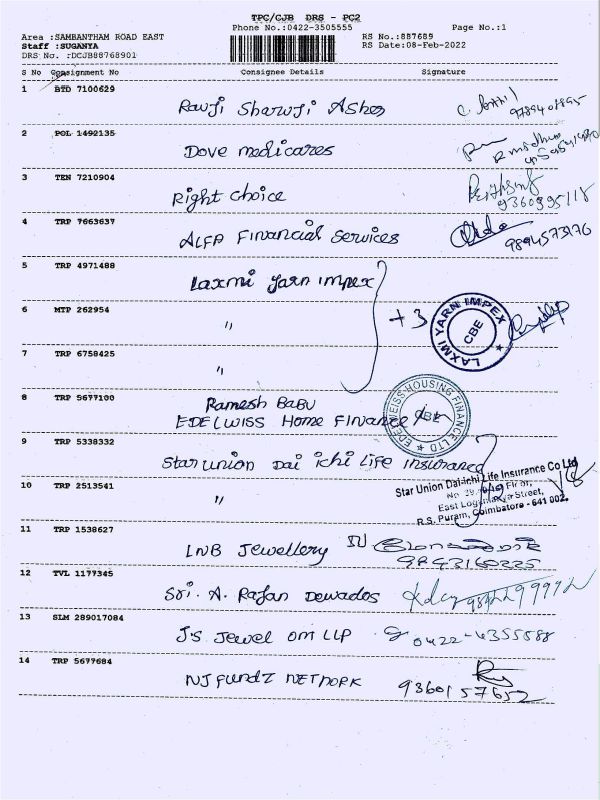 TPC/CJB DRS - PC2
Phone No.:0422-3505555 Page No.:1
Area :SAMBANTHAM ROAD EAST RS No.:887689
Staff :SUGANYA RS Date:08-Feb-2022
DRS No. :DCJB88768901
S No Consignment No Consignee Details Signature
1 BTD 7100629
Ravji Sharvji Asher
2 POL 1492135
Dove medicares
3 TEN 7210904
Right choice
4 TRP 7663637
ALFA Financial Services 9894573176
5 TRP 4971488
Laxmi Yarn impex
6 MTP 262954
" +3 LAXMI YARN IMPEX CBE
7 TRP 6758425
"
8 TRP 5677100
Ramesh Babu
EDELWISS Home Finance EDELWEISS HOUSING FINANCE LTD CBE
9 TRP 5338332
Star union Dai ichi Life insurance
10 TRP 2513541
" Star Union Dai-ichi Life Insurance Co Ltd
East Street,
R.S. Puram, Coimbatore - 641 002.
11 TRP 1538627
LNB Jewellery
9893160225
12 TVL 1177345
Sri. A. Rajan Dewados
13 SLM 289017084
J.S Jewel om LLP 0422-4355588
14 TRP 5677684
NJ Fundz NETWORK 9360157652